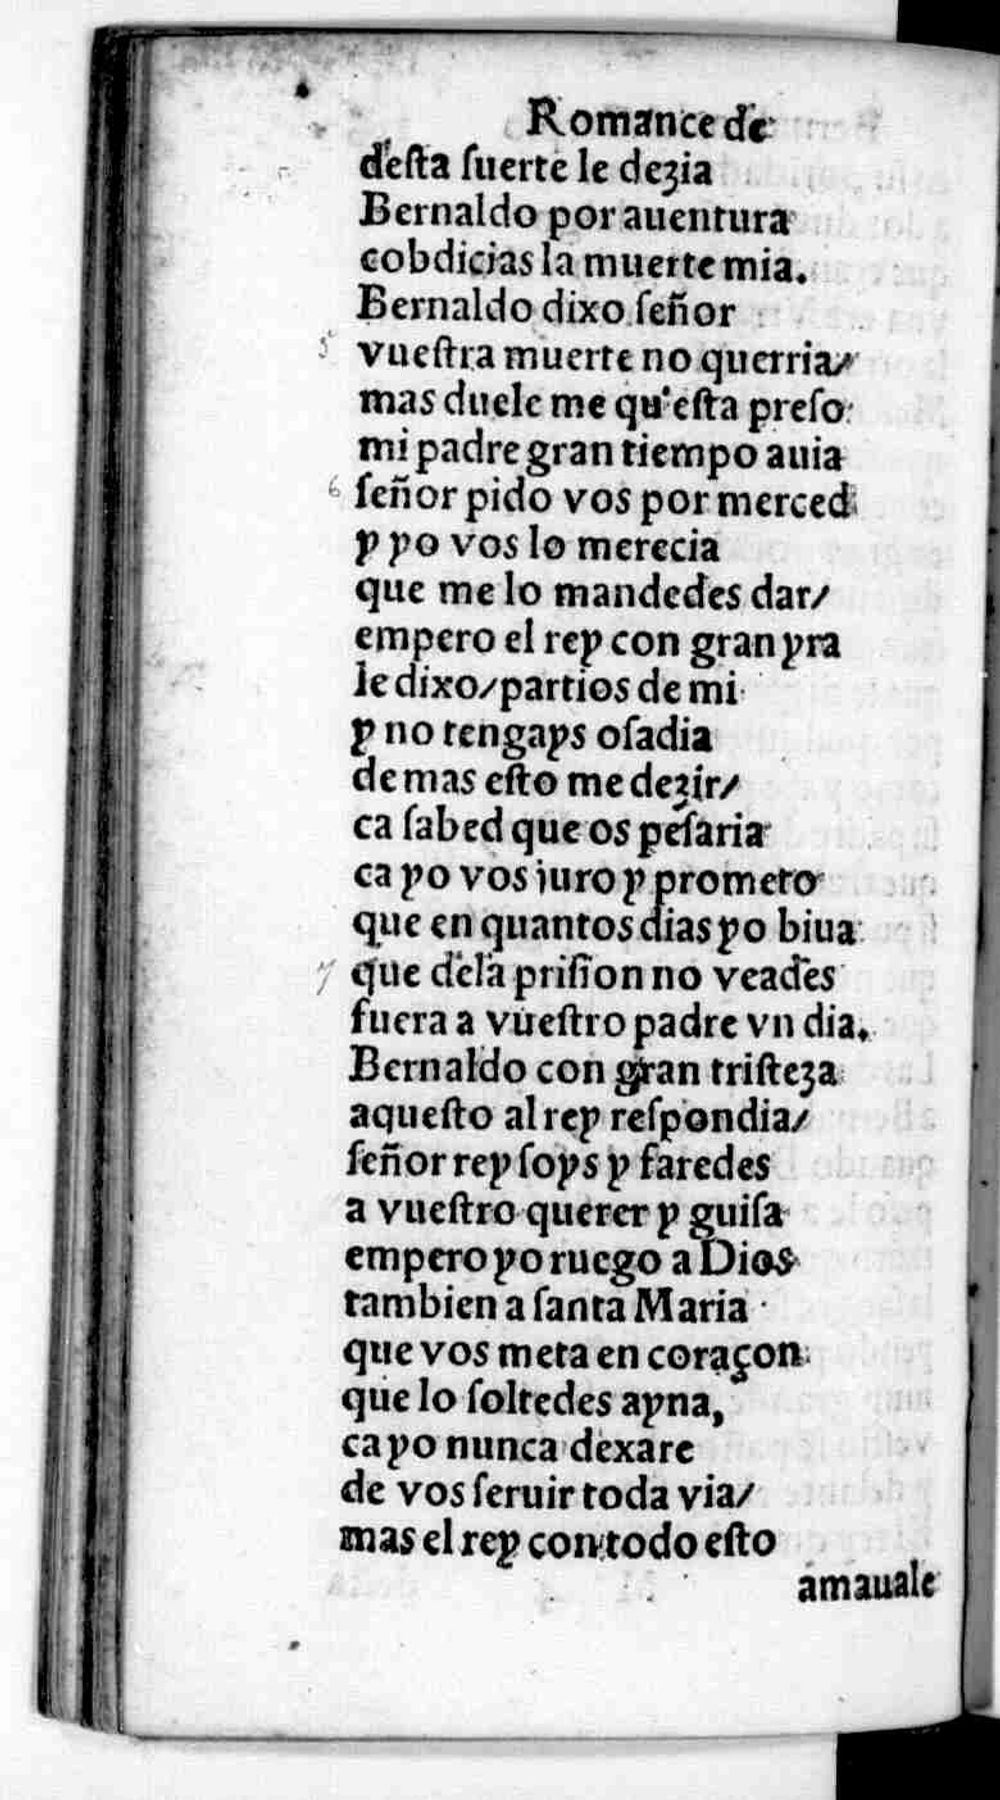 Romance de
desta ſuerte le dezia
Bernaldo por auentura
cobdicias la muerte mia.
Bernaldo dixo ſeñor
5 vueſtra muerte no querria/
mas duele me qu'eſta preſo
mi padre gran tiempo auia
6 ſeñor pido vos por merced
y yo vos lo merecia
que me lo mandedes dar/
empero el rey con gran yra
le dixo/partios de mi
y no tengays oſadia
de mas eſto me dezir/
ca ſabed que os peſaria
ca yo vos iuro y prometo
que en quantos dias yo biua
7 que dela priſion no veades
fuera a vueſtro padre vn dia.
Bernaldo con gran triſteza
aqueſto al rey reſpondia/
ſeñor rey ſoys y faredes
a vueſtro querer y guiſa
empero yo ruego a Dios
tambien a ſanta Maria
que vos meta en coraçon
que lo ſoltedes ayna,
ca yo nunca dexare
de vos ſeruir toda via/
mas el rey con todo eſto
amauale